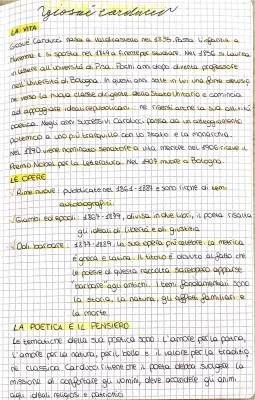 giosuè carducci
LA VITA
Giosuè Carducci nasce a Valdicastello nel 1835. Passa l'infanzia a
Maremma e si sposta nel 1849 a Firenze per studiare. Nel 1856 si laurea
in lettere all'Università di Pisa. Pochi anni dopo diventa professore
nell'Università di Bologna. In questi anni sale in lui una forte
verso la nuova classe dirigente dello Stato Unitario e comincia
ad appoggiare ideali repubblicani ne risente anche la sua attività
poetica. Negli anni successivi Carducci, passa da un atteggiamento
polemico a uno più tranquillo con lo Stato e la monarchia.
Nel 1890 viene nominato senatore a vita, mentre nel 1906 riceve il
Premio Nobel per la Letteratura. Nel 1907 muore a Bologna.
LE OPERE
Rime nuove: pubblicate nel 1861-1887 e sono ricche di temi
autobiografici.
Giambi ed epodi: 1867-1879, divisa in due libri, il poeta risalta
gli ideali di libertà e di giustizia
Odi barbare: 1877-1889, la sua opera più celebre. la metrica
è greca e latina. Il titolo è dovuto al fatto che
le poesie di questa raccolta sarebbero apparse
"barbare" agli antichi. I temi fondamentali sono
la storia, la natura, gli affetti familiari e
la morte.
LA POETICA E IL PENSIERO
Le tematiche della sua poetica sono: L'amore per la patria,
l'amore per la natura, per il bello e il valore per la tradizio
ne classica. Carducci ritiene che il poeta debba svolgere la
missione di confortare gli uomini, deve accendere gli animi
agli ideali religiosi e patriottici